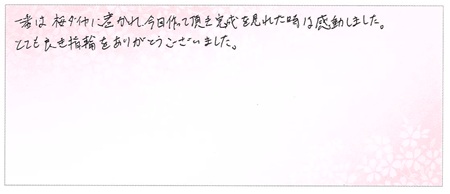 々は桜ダイヤに惹かれ、今日作って頂き完成を見れた時は感動しました。
とても良き指輪をありがとうございました。